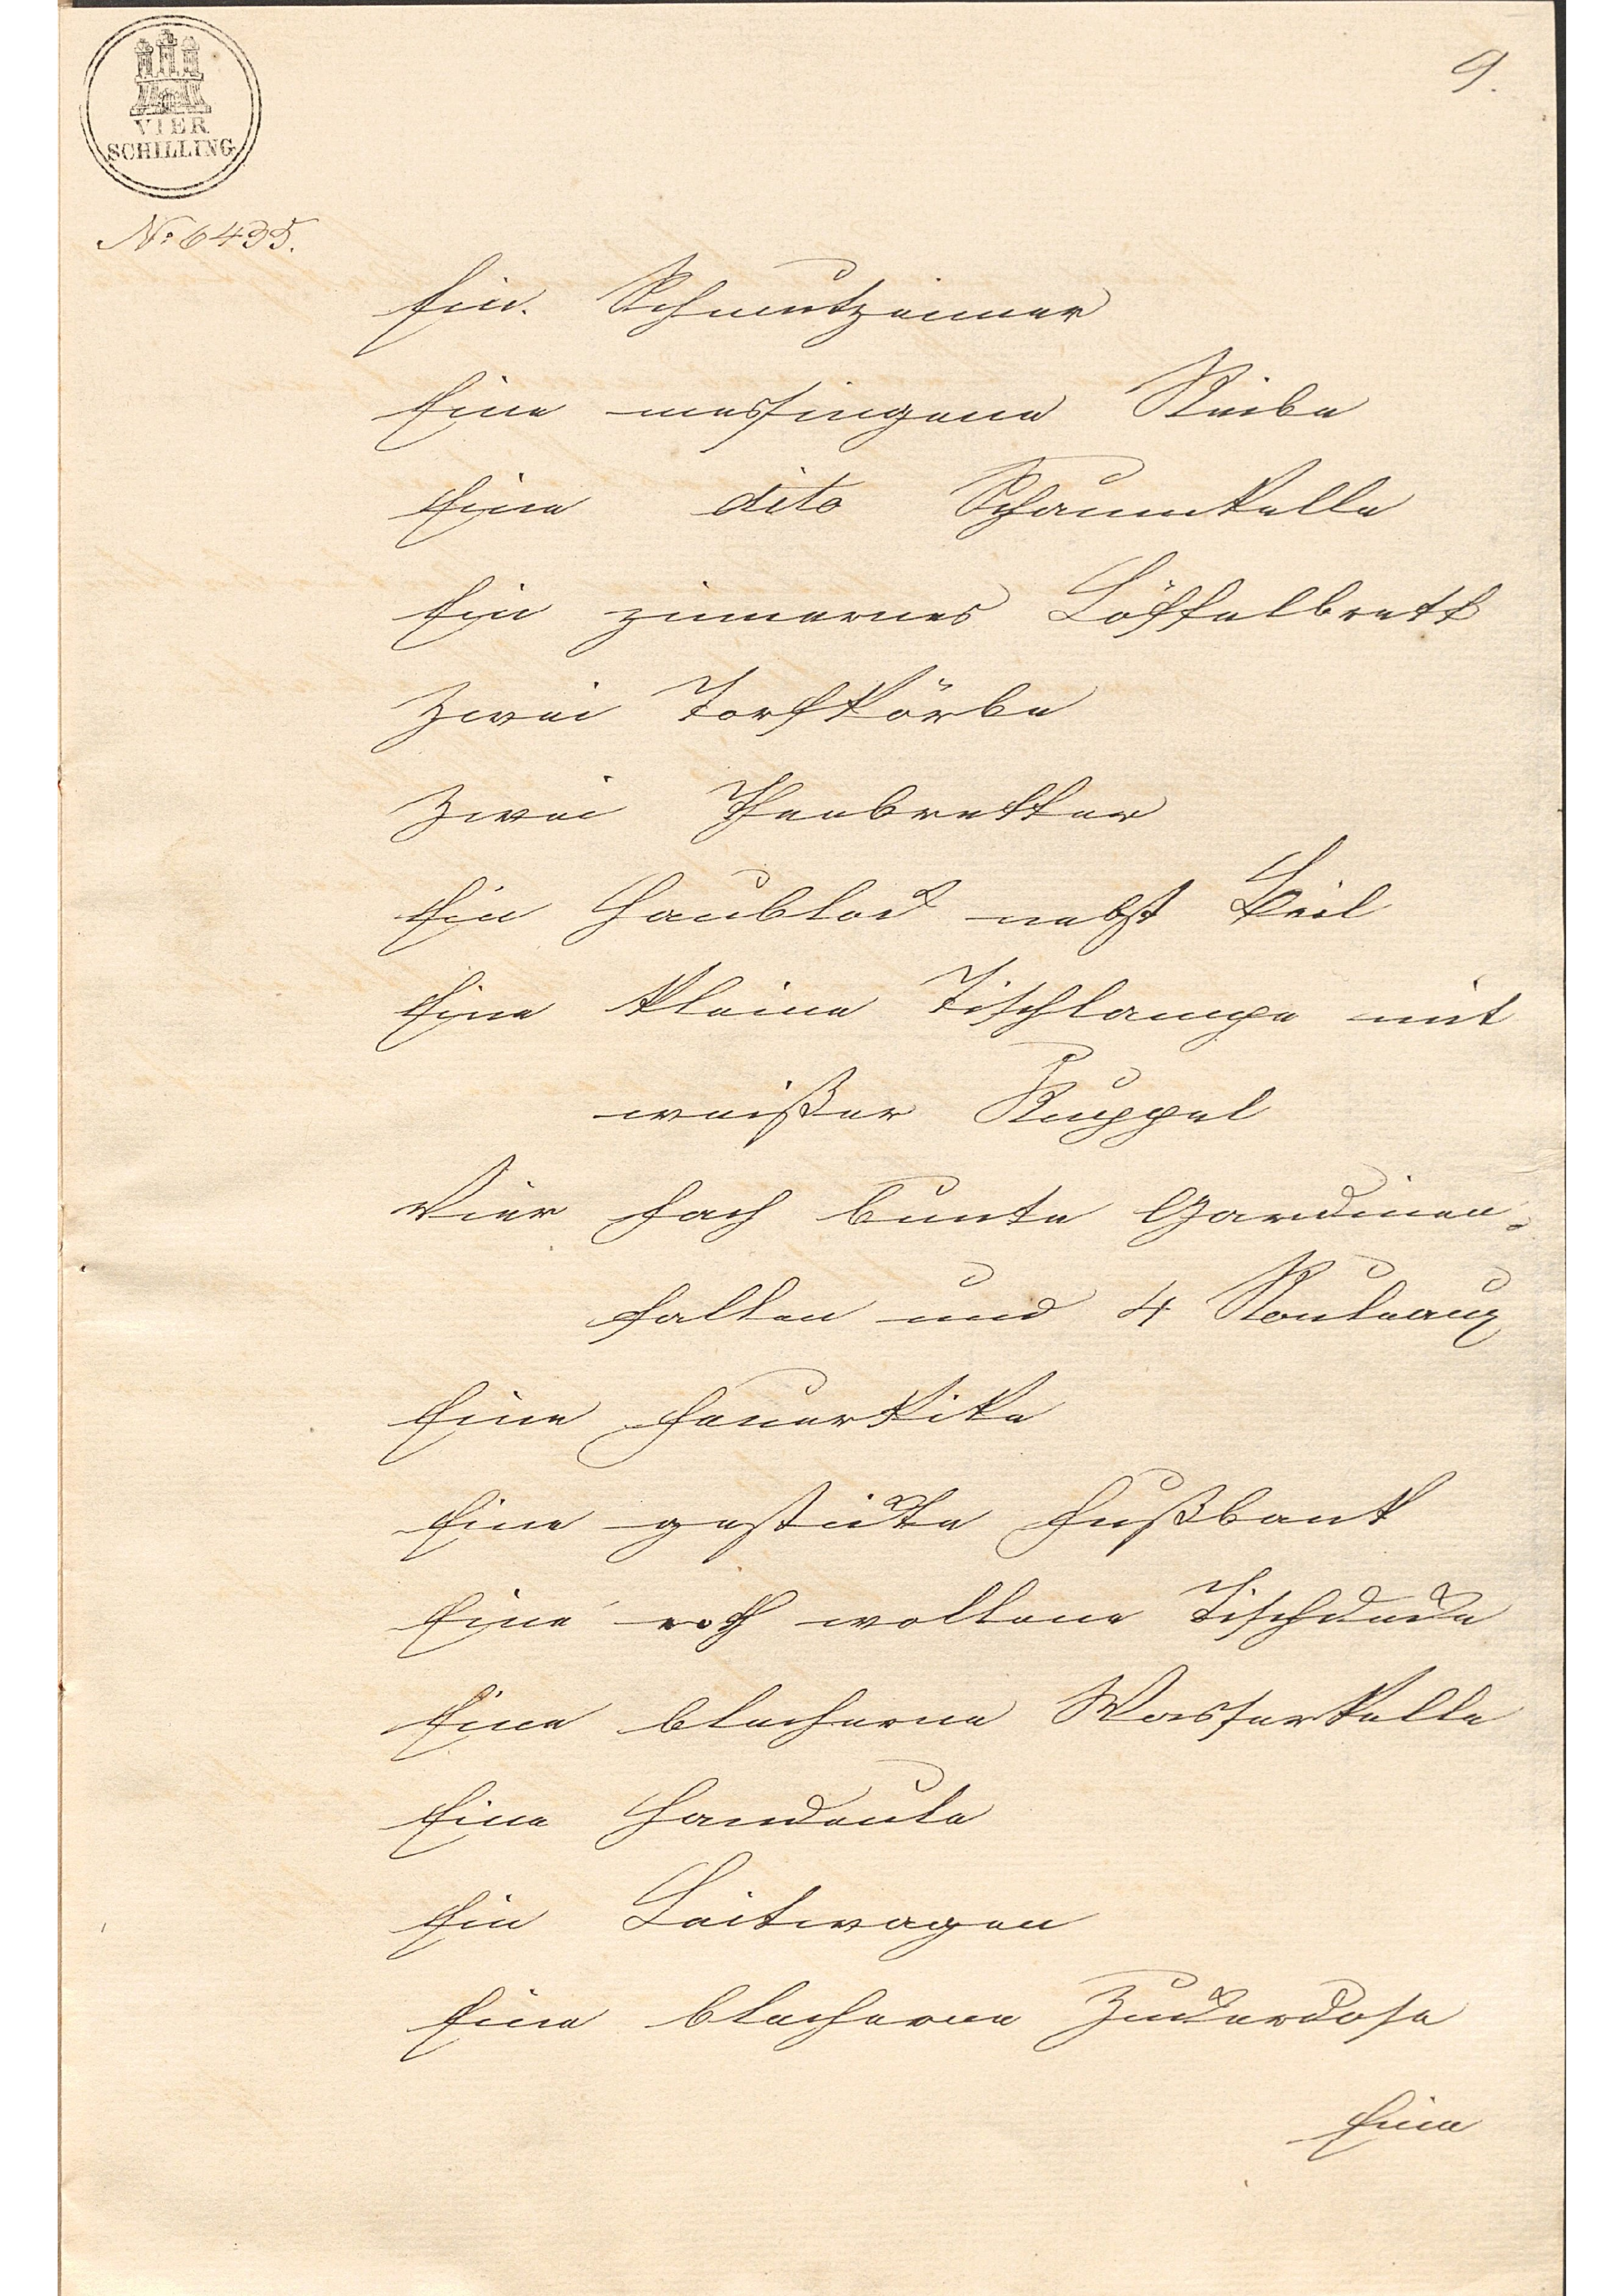 9.
VIER
SCHILLING
No 6435.
Ein Schmutzeimer
Eine messingene Reibe
Eine dito Schaumkelle
Ein zinnernes Löffelbrett
Zwei Torfkörbe
Zwei Theebretter
Ein Haublock nebst Beil
Eine kleine Tischlampe mit
weißer Kuppel
Vier fach bunte Gardinen-
falten und 4 Rouleaux
Eine Feuerkike
Eine gestickte Fußbank
Eine roth wollene Tischdecke
Eine blecherne Wasserkelle
Eine Handeule
Ein Leitwagen
Eine blecherne Zuckerdose
Eine